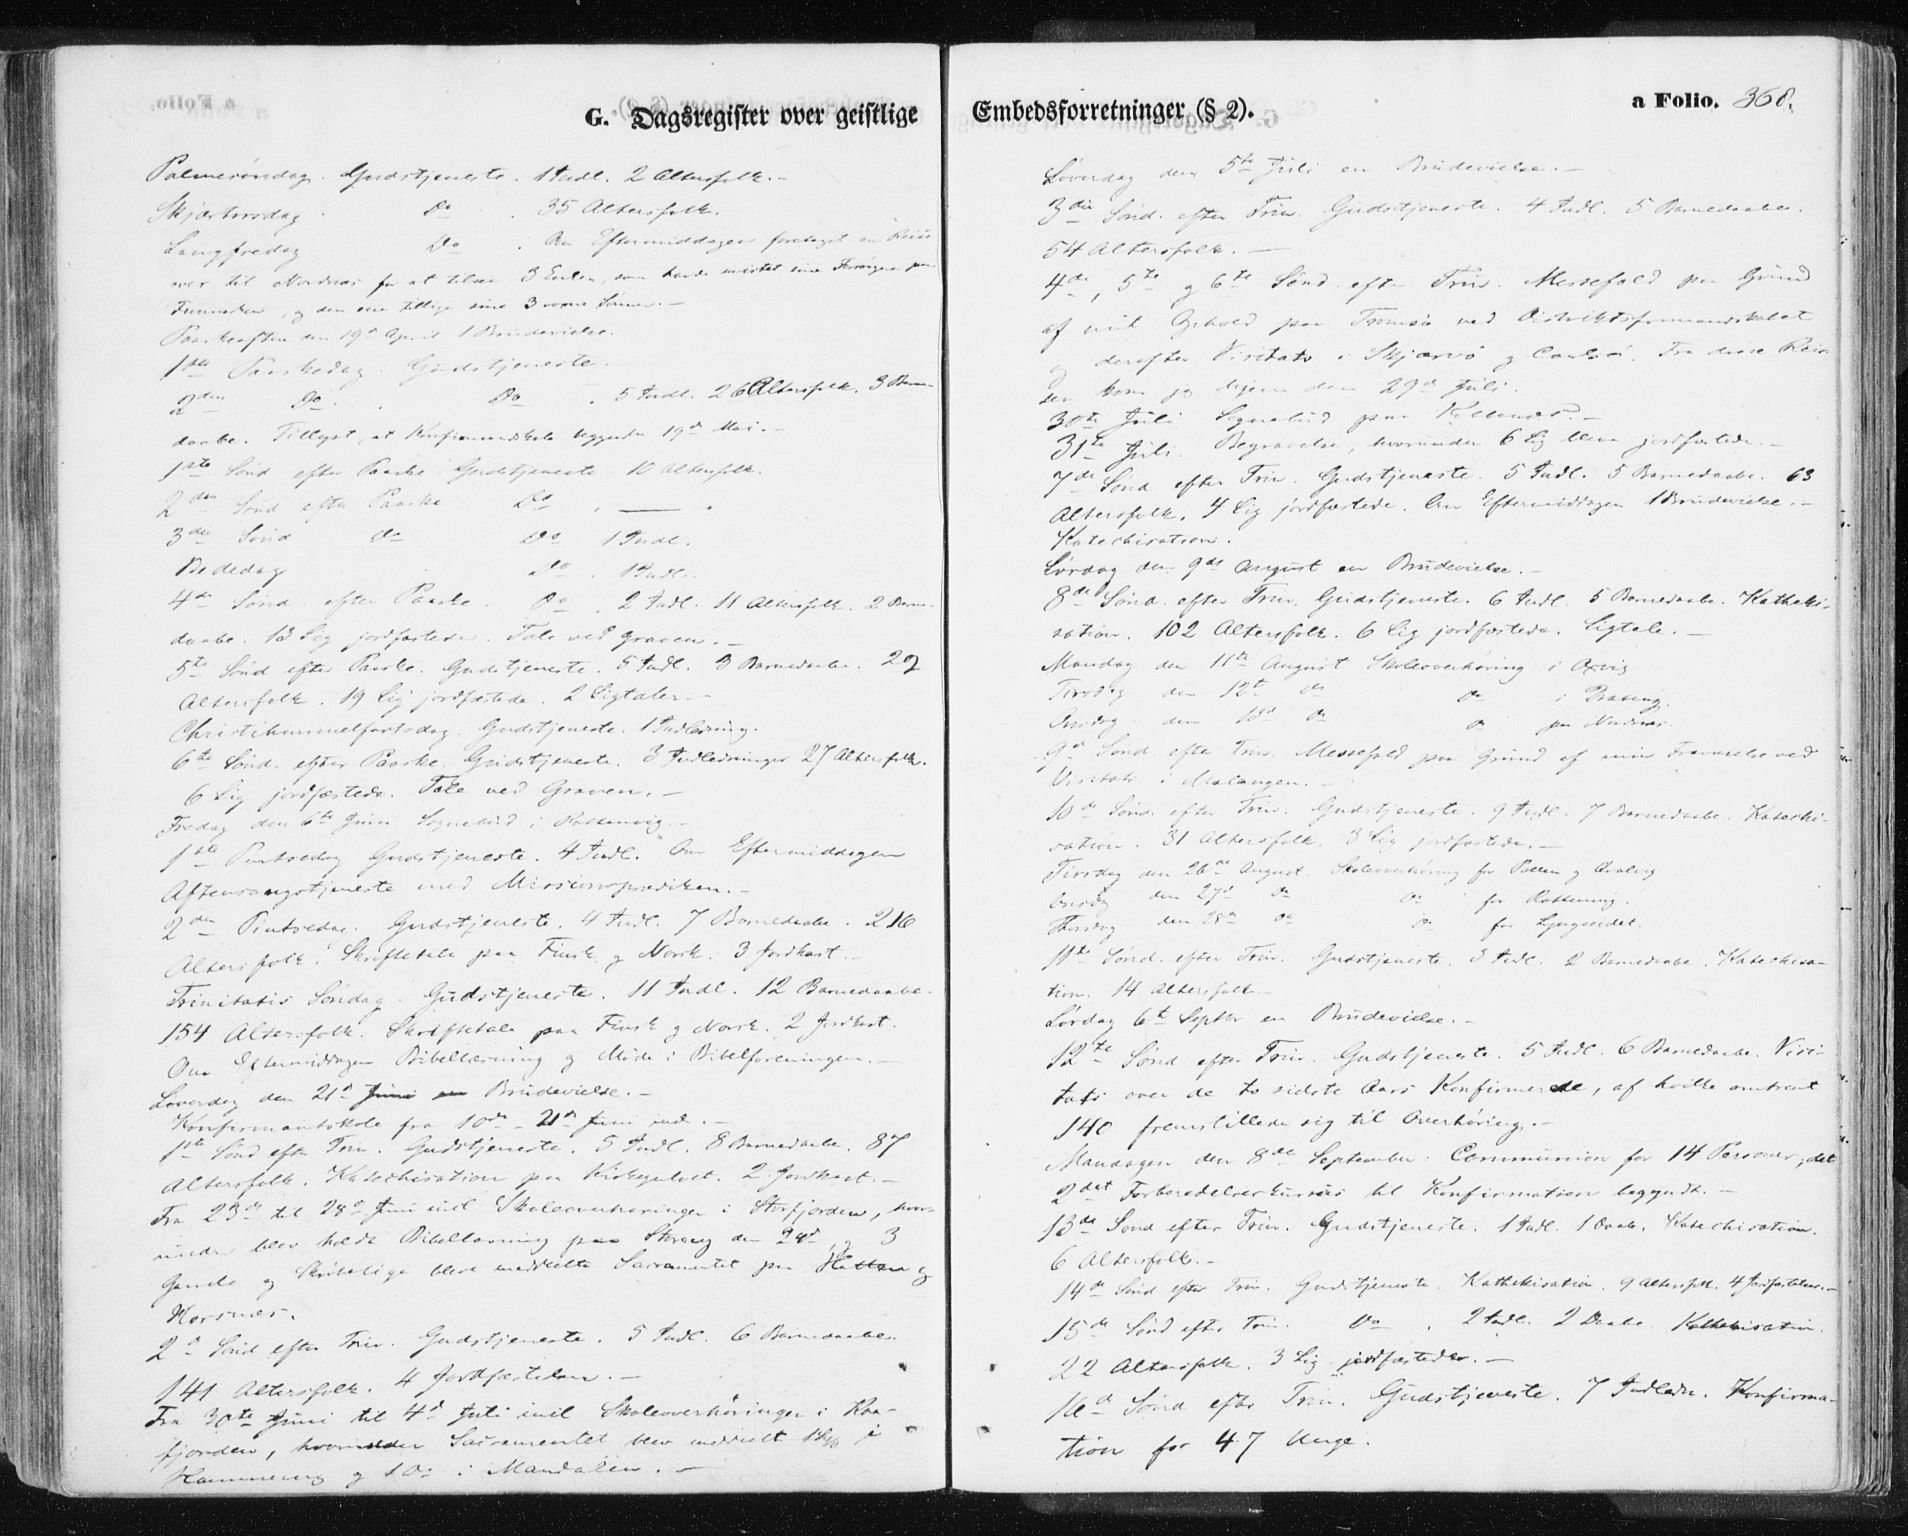 G. Dagsregister over geistlige
Palmesøndag. Gudstjeneste. 1 Indl. 2 Altersfolk. –
Skjærtorsdag . Do . 35 Altersfolk.
Langfredag Do . Om Eftermiddagen foretaget en Reise
over til Nordnæs for at tilsee 3 Enker, som havde mistet sine Forsørgere paa
Finmarken, og den ene tillige sine 3 voxne Sønner. –
Paaskeaften den 19de April 1 Brudevielse.
1ste Paaskedag. Gudstjeneste.
2den Do . Do . 5 Indl. 26 Altersfolk. 3 Barne-
daabe. Tillyst, at Konfirmandskole begynder 19de Mai. –
1ste Sønd efter Paaske Gudstjeneste 10 Altersfolk.
2den Sønd efter Paaske Do . — .
3die Sønd Do Do 1 Indl.
Bededag Do . 1 Indl.
4de Sønd. efter Paaske. Do . 2 Indl. 11 Altersfolk. 2 Barne-
daabe. 13 Lig jordfæstede. Tale ved Graven. –
5te Sønd efter Paaske. Gudstjeneste. 5 Indl. 3 Barnedaabe. 29
Altersfolk. 19 Lig jordfæstede. 2 Ligtaler. –
Christihimmelfartsdag. Gudstjeneste. 1 Indledning.
6te Sønd. efter Paaske. Gudstjeneste. 3 Indledninger 27 Altersfolk.
6 Lig jordfæstede. Tale ved Graven. –
Fredag den 6te Juni Sognebud i Rottenvig. –
1ste Pintsedag Gudstjeneste. 4 Indl. Om Eftermiddagen
Aftensangstjeneste med Missionsprædiken. –
2den Pintsedag. Gudstjeneste. 4 Indl. 7 Barnedaabe. 216
Altersfolk. Skriftetale paa Finsk og Norsk. 3 Jordkast. –
Trinitatis Søndag. Gudstjeneste. 11 Indl. 12 Barnedaabe.
154 Altersfolk. Skriftetale paa Finsk og Norsk. 2 Jordkast.
Om Eftermiddagen Bibellæsning og Møde i Bibelforeningen. –
Løverdag den 21de Juni en Brudevielse. –
Konfirmantskole fra 10de – 21de Juni incl. –
1ste Sønd efter Trin. Gudstjeneste. 5 Indl. 8 Barnedaabe. 87
Altersfolk. Katechisation paa Kirkegulvet. 2 Jordkast. –
Fra 23de til 28de Juni incl Skoleoverhøringer i Storfjorden, hvor-
under blev holdt Bibellæsning paa den 24de, og 3
Gamle og Skrøbelige bleve meddelte Sacramentet paa og
Horsnes.
2de Sønd efter Trin. Gudstjeneste. 5 Indl. 6 Barnedaabe.
141 Altersfolk. 4 Jordfæstelser. –
Fra 30te Juni til 4de Juli incl Skoleoverhøringer i Kaa-
fjorden, hvorunder Sacramentet blev meddelt 1 Syg i
og 1 Do i Mandalen. –
Embedsforretninger (§ 2).
a Folio. 368.
Løverdag den 5te Juli en Brudevielse. –
3die Sønd. efter Trin. Gudstjeneste. 4 Indl. 5 Barnedaabe.
54 Altersfolk. –
4de, 5te og 6te Sønd. eft. Trin. Messefald paa Grund
af mit Ophold paa Tromsø ved Distriktsformandskabet
og derefter Visitats i Skjærvø og Carlsø. Fra denne Reise
kom jeg hjem den 29de Juli.
30te Juli Sognebud paa . –
31te Juli. Begravelse, hvorunder 6 Lig bleve jordfæstede. –
7de Sønd efter Trin. Gudstjeneste. 5 Indl. 5 Barnedaabe. 63
Altersfolk. 4 Lig jordfæstede. Om Eftermiddagen 1 Brudevielse. –
Katechisation.
Lørdag den 9de August en Brudevielse. –
8de Sønd. efter Trin. Gudstjeneste. 6 Indl. 5 Barnedaabe. Katheki-
sation. 102 Altersfolk. 6 Lig jordfæstede. Ligtale. –
Mandag den 11te August Skoleoverhøring i Oxvig
Tirsdag den 12te Do Do i
Onsdag den 13de Do Do paa Nordnæs
9de Sønd. efter Trin. Messefald paa Grund af min Fraværelse ved
Visitats i Malangen. –
10de Sønd. efter Trin. Gudstjeneste. 9 Indl. 7 Barnedaabe. Katechi-
sation. 31 Altersfolk. 3 Lig jordfæstede. –
Tirsdag den 26de August. Skoleoverhøring for Pollen og Qvalvig
Onsdag den 27de Do Do for Rottenvig.
Thorsdag den 28de Do Do for Lyngseidet.
11te Sønd. efter Trin. Gudstjeneste. 3 Indl. 2 Barnedaabe. Katechisa-
tion. 14 Altersfolk. –
Lørdag 6te Septbr en Brudevielse. –
12te Sønd efter Trin. Gudstjeneste. 5 Indl. 6 Barnedaabe. Visi-
tats over de to sidste Aars Konfirmerede, af hvilke omtrent
140 fremstillede sig til Overhøring. –
Mandagen den 8de September. Communion for 14 Personer; det
2det Forberedelseskursus til Konfirmation begyndt. –
13de Sønd efter Trin. Gudstjeneste. 1 Indl. 1 Daab. Katechisation.
6 Altersfolk. –
14de Sønd efter Trin. Gudstjeneste. Kathekisation. 9 Altersfolk. 4 Jordfæstelser. –
15de Sønd efter Trin. Do . 2 Indl. 2 Daabe. Kathekisation.
22 Altersfolk. 3 Lig jordfæstede. –
16de Sønd efter Trin. Gudstjeneste. 7 Indledn. Konfirma-
tion for 47 Unge.